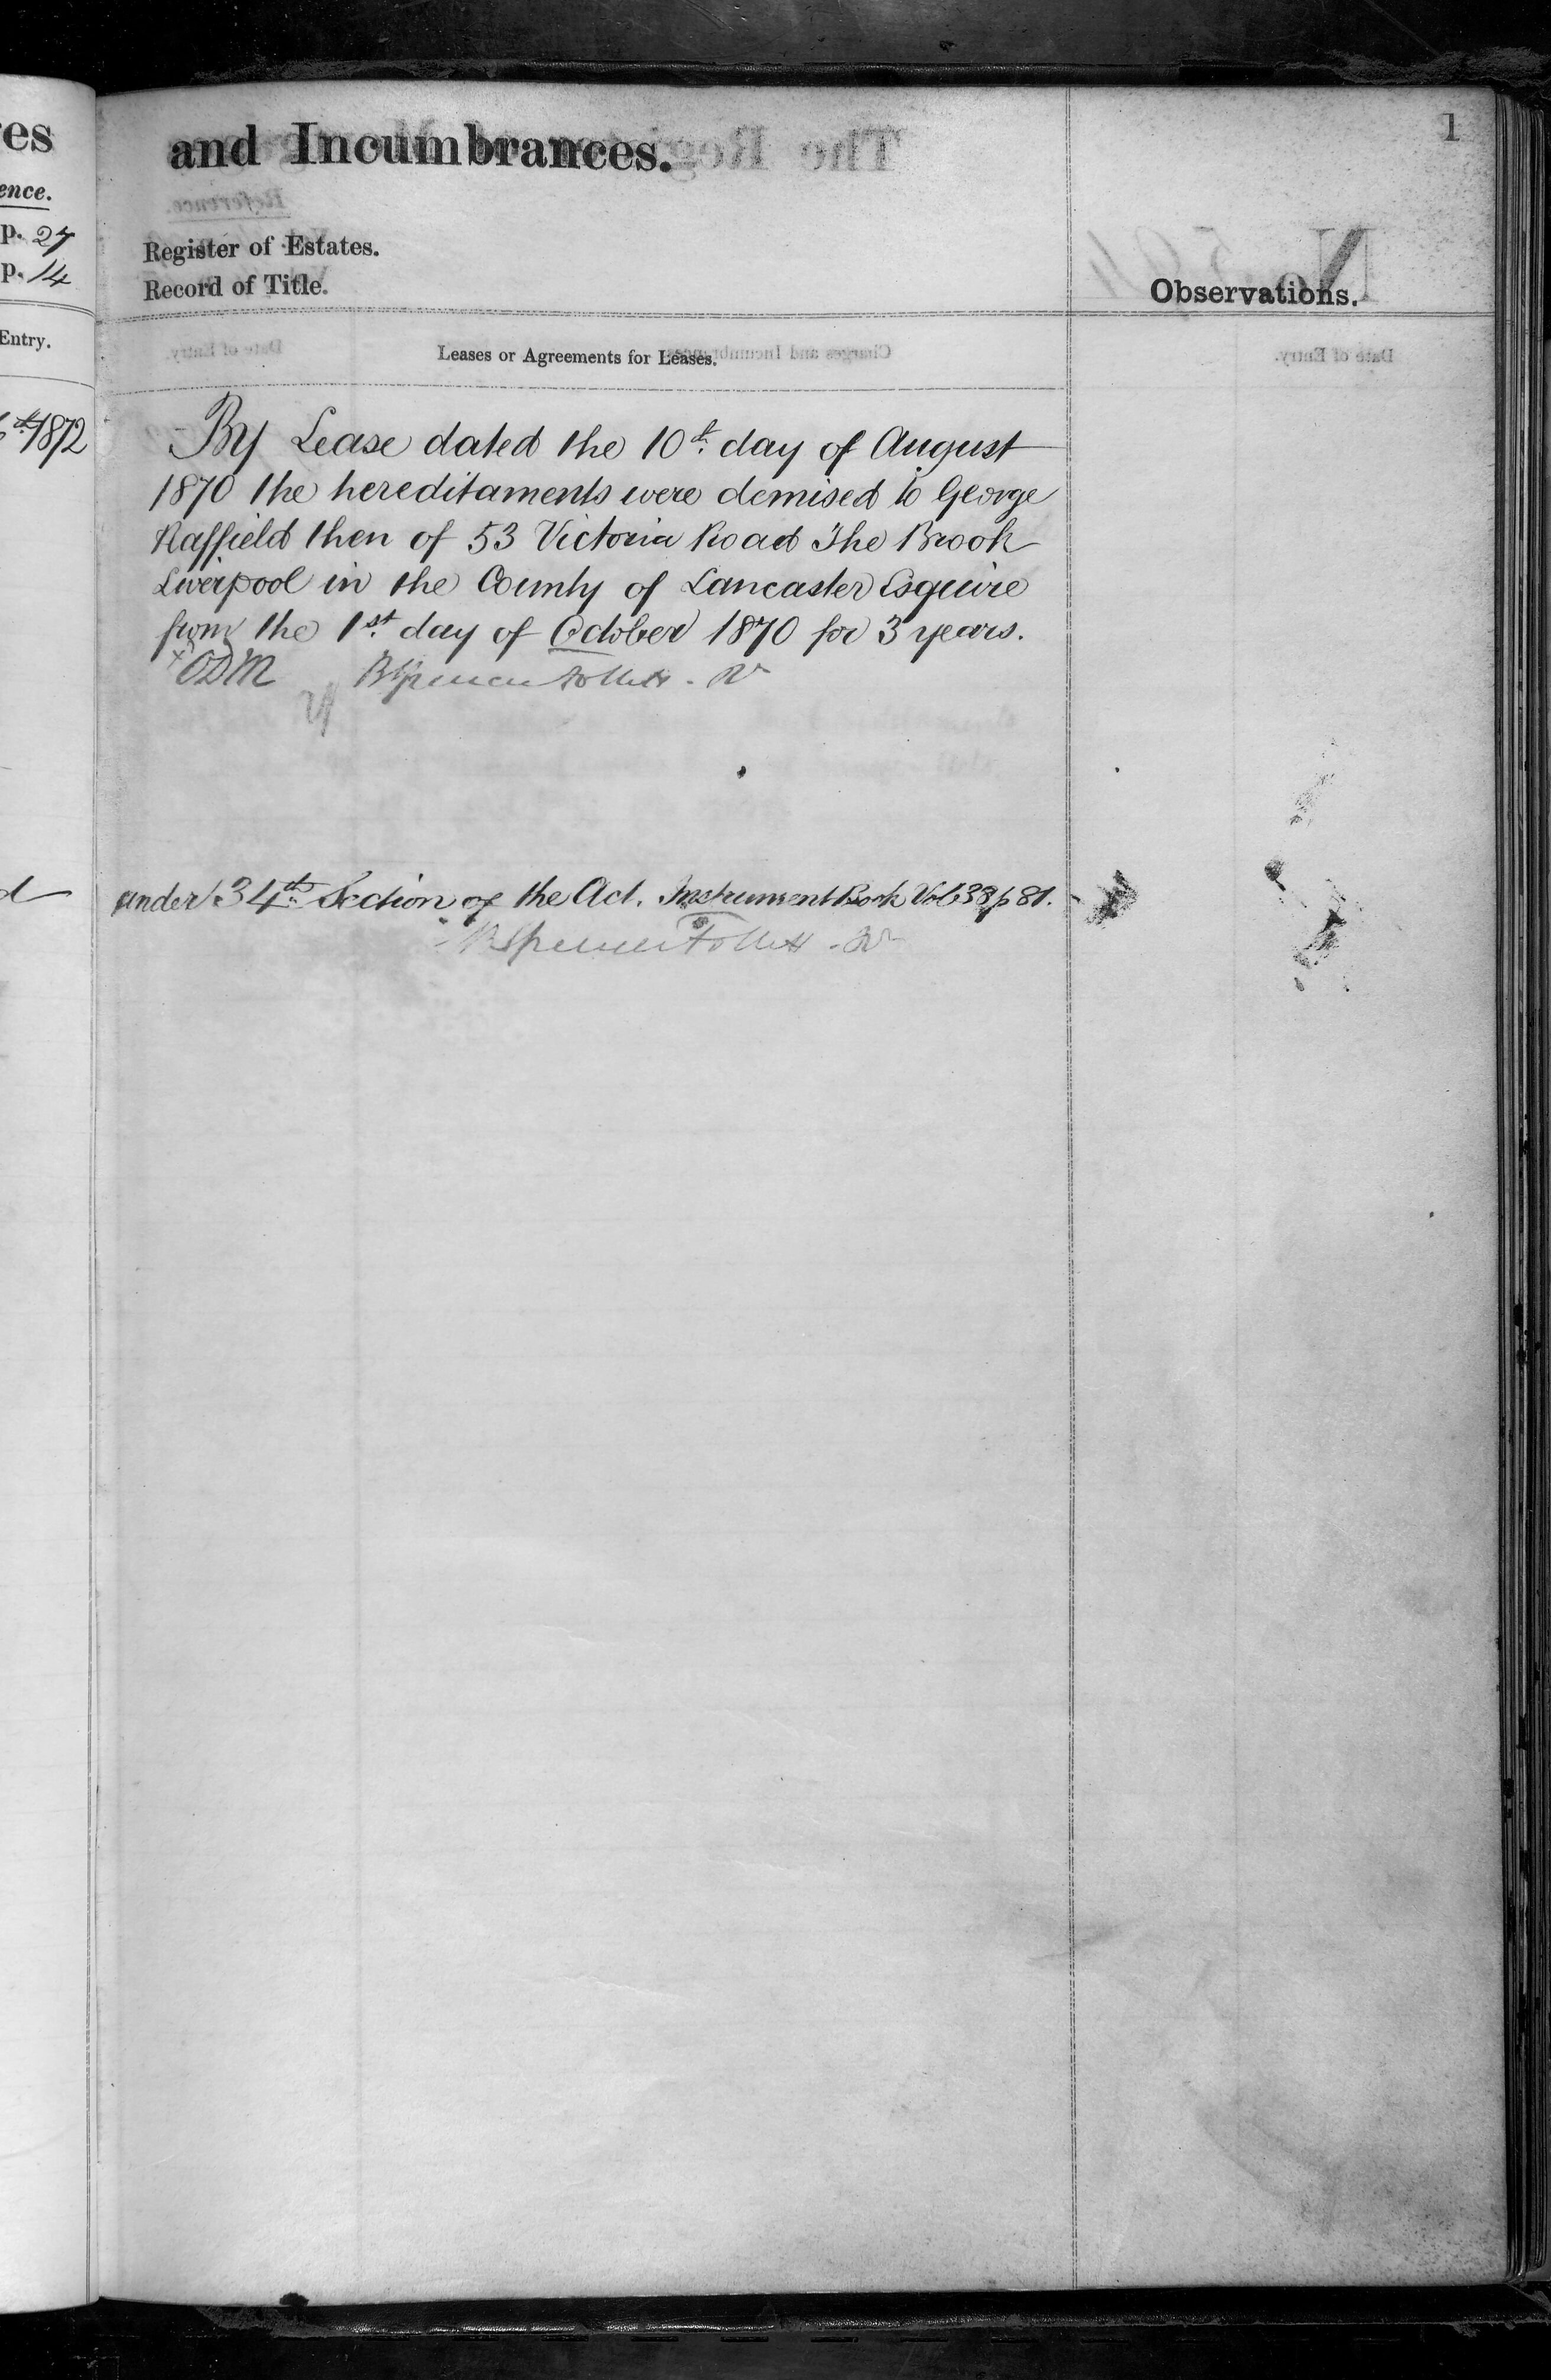 es
ence.
p. 27
p. 14
Entry.
1872
d
1
and Incumbrances.
Register of Estates.
Record of Title.
Observations.
Leases or Agreements for Leases.
By Lease dated the 10th. day of August
1870 the hereditaments were demised to George
Raffield then of 53 Victoria Road The Brook
Liverpool in the County of Lancaster Esquire
from the 1st. day of October 1870 for 3 years.
ODM BSpencer Follett - Rr
under 34th. Section of the Act. Instrument Book Vol 38 p 81.
BSpencer Follett - Rr